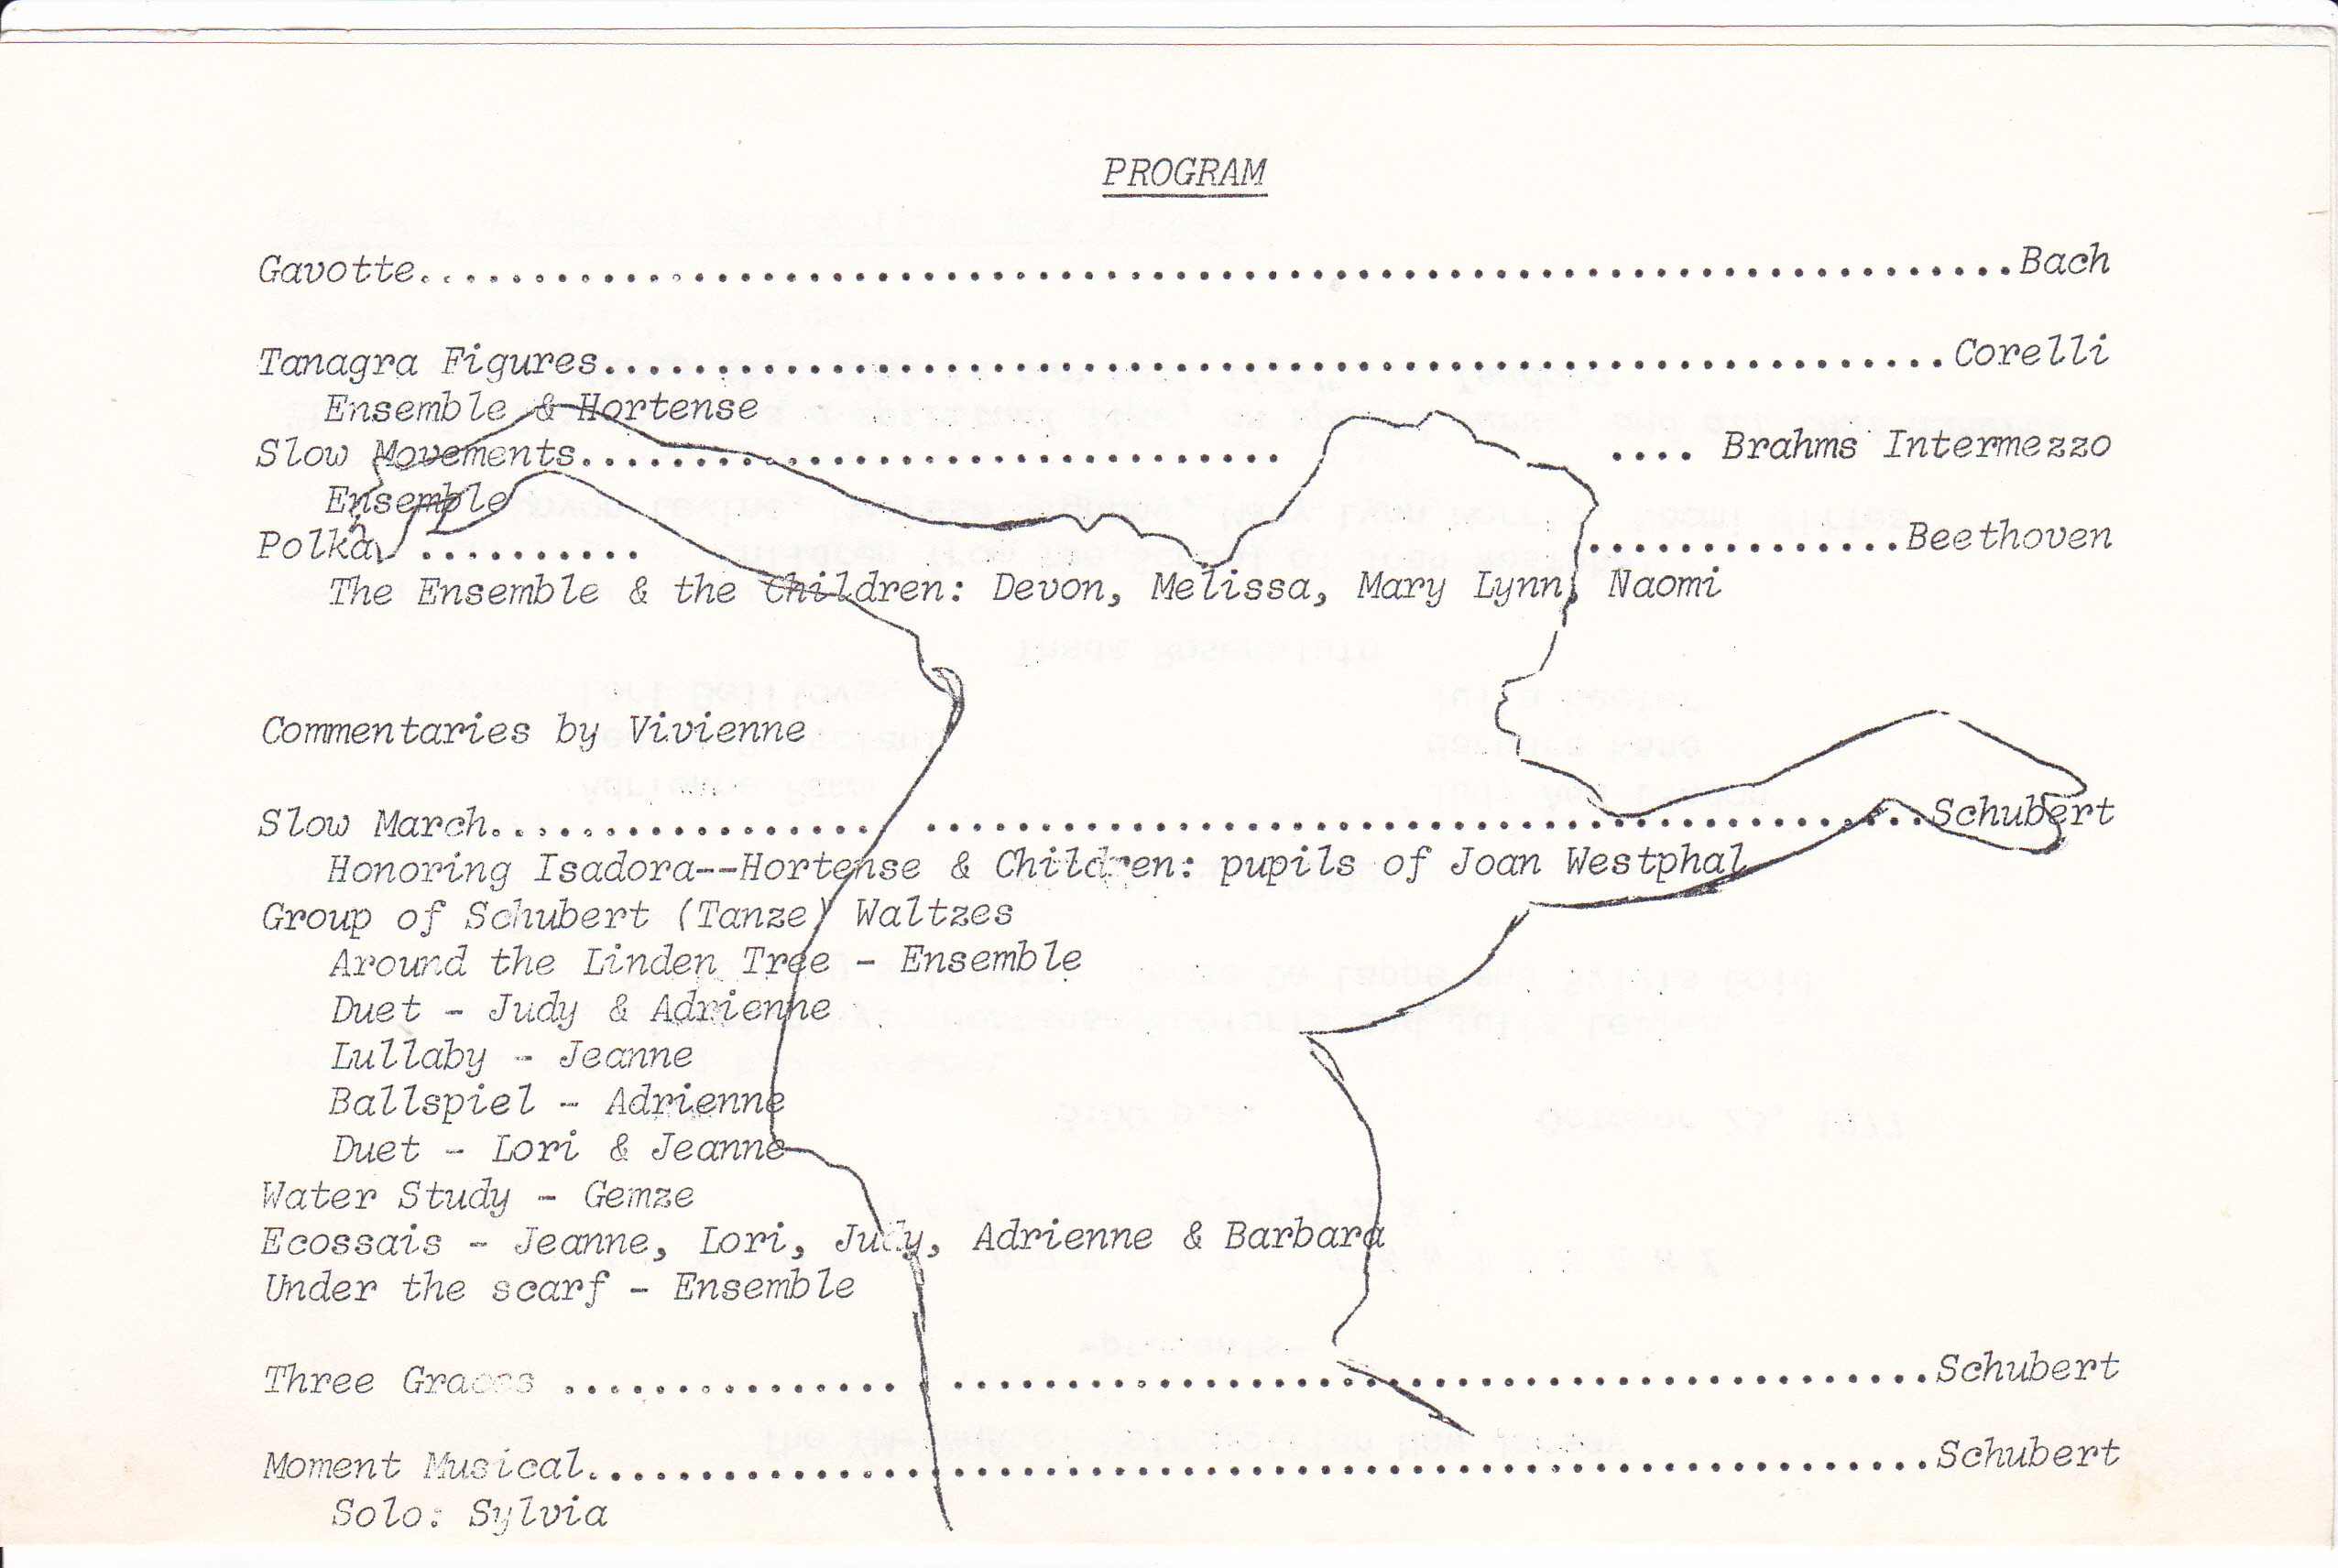 PROGRAM
Gavotte..........Bach
Tanagra Figures..........Corelli
Ensemble & Hortense
Slow Movements.......... .... Brahms Intermezzo
Ensemble
Polka ..........  ..............Beethoven
The Ensemble & the Children: Devon, Melissa, Mary Lynn, Naomi
Commentaries by Vivienne
Slow March..........Schubert
Honoring Isadora--Hortense & Children: pupils of Joan Westphal
Group of Schubert (Tanze) Waltzes
Around the Linden Tree - Ensemble
Duet - Judy & Adrienne
Lullaby - Jeanne
Ballspiel - Adrienne
Duet - Lori & Jeanne
Water Study - Gemze
Ecossais - Jeanne, Lori, Judy, Adrienne & Barbara
Under the scarf - Ensemble
Three Graces ..........Schubert
Moment Musical..........Schubert
Solo: Sylvia